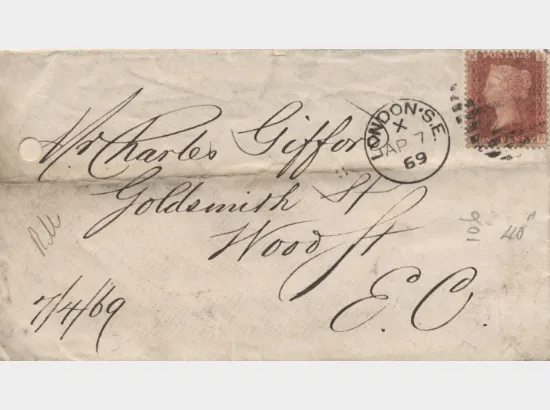 Mr Charles Giffor
Goldsmith St
Wood St
E.C.
7/4/69
LONDON·S.E.
X
AP 7
69
POSTAGE
106